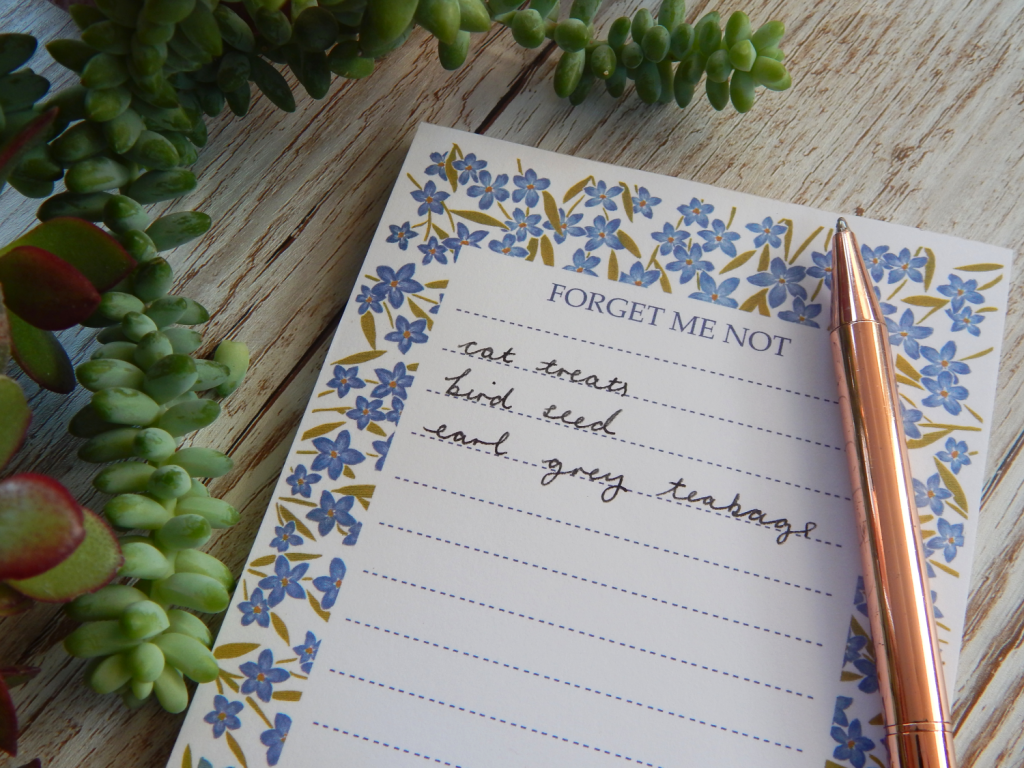 FORGET ME NOT
cat treats
bird seed
earl grey teabags